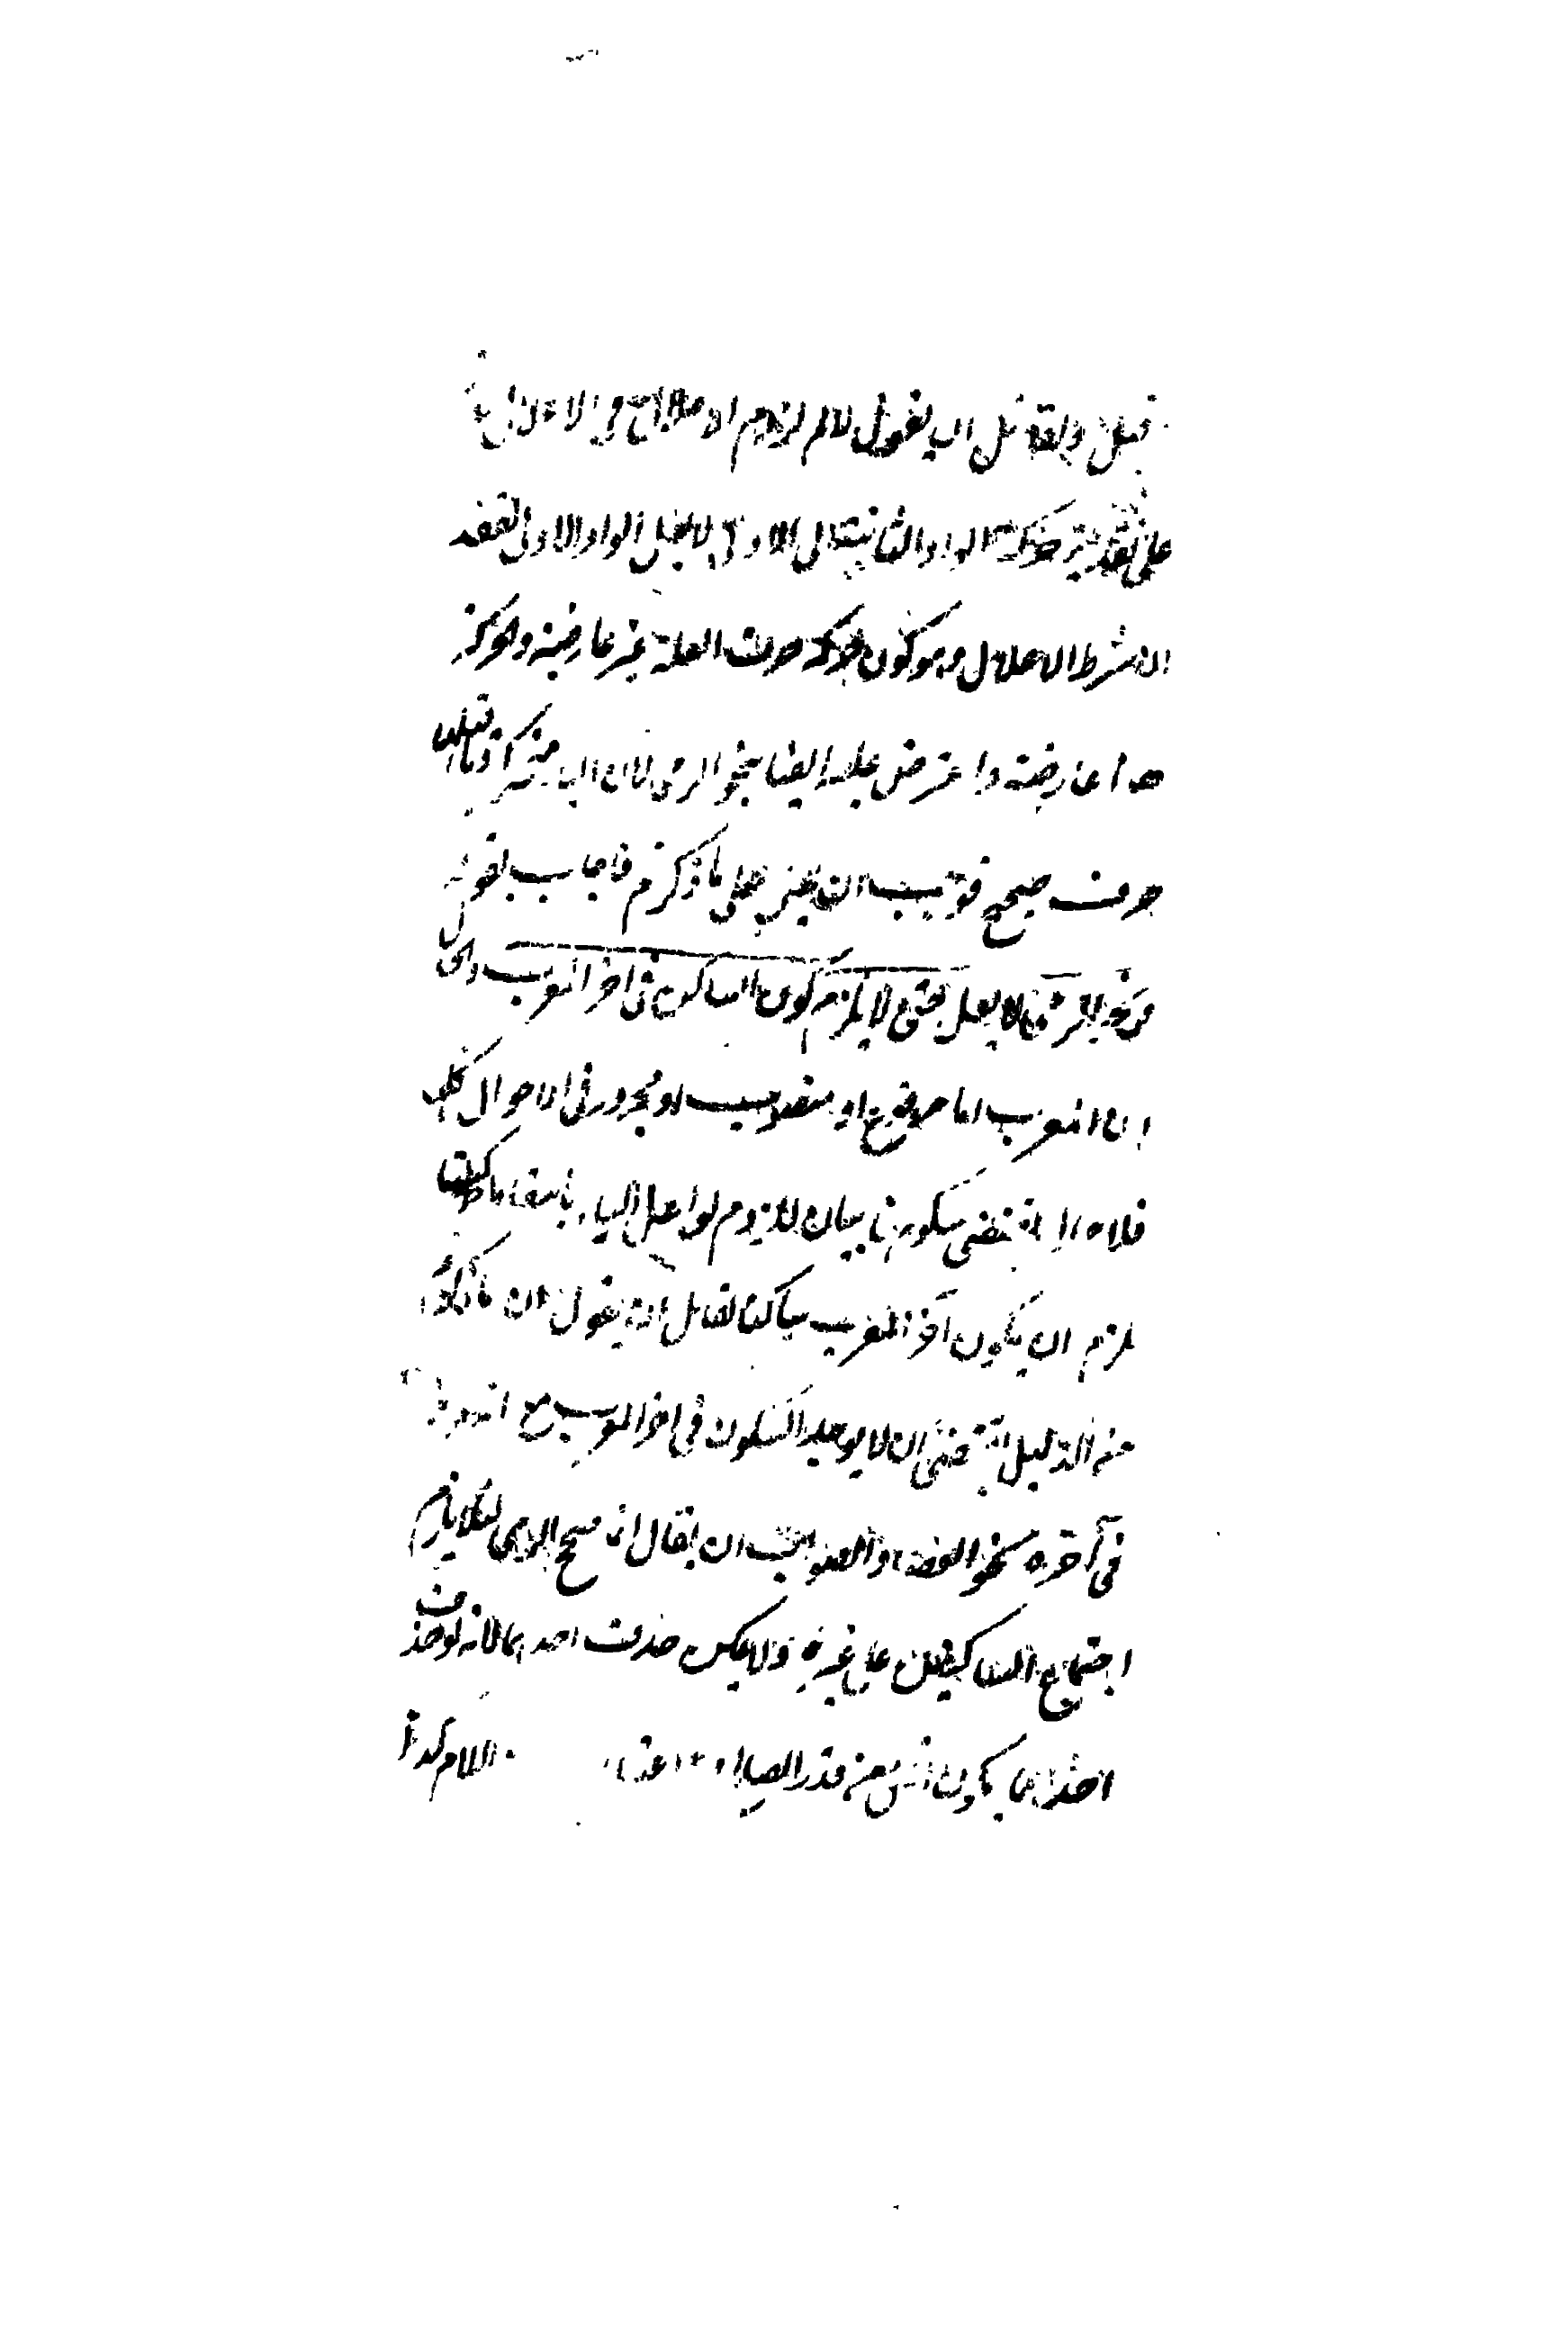 قيل ولقائل ان يقول لا لم لزوم الاعلال في الاعلال
على تقدير حركة الواو الثانية الى الاولى لا يعل الواو الاولى لفقد
ان شرط الاعلال وهو كون حركة حرف العلة غير عارضية والحركة
هنا عارضة واعترض عليه ايضا بنحو الرمى لان الياء متحركة وما قبلها
حرف صحيح فوجب ان يعل على ما ذكرتم فاجاب بقوله
ونحو الرمى لا يعل حتى لا يلزم كون الساكن في آخر المعرب والحال
ان المعرب اما مرفوع او منصوب او مجرور في الاحوال كلها
فلا يقتضى سكون ما بيان للزوم لو اعل الياء باسقاط حركتها
يلزم ان يكون آخر المعرب ساكنا لقائل ان يقول ان ما ذكرتم
من الدليل يقتضى ان لا يوجد السكون في آخر المعرب مع انه
في آخره نحو العصا والصواب ان يقال انما صح الرمى لئلا يلزم
اجتماع الساكنين على غيره ولا يمكن حذف احدهما لانه لو حذف
احدهما يكون انقص من قدر الصالح اللام